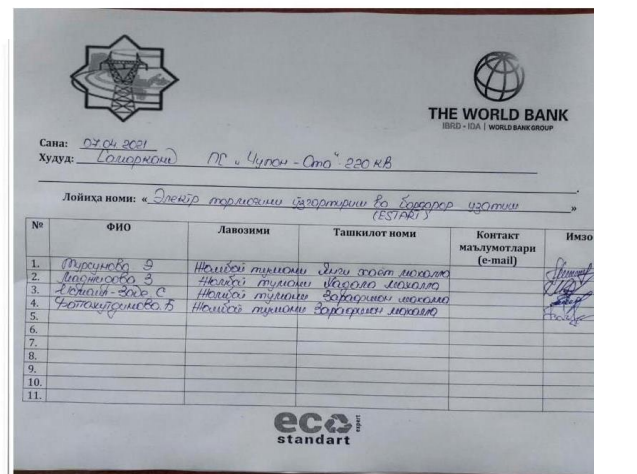 THE WORLD BANK
IBRD • IDA | WORLD BANK GROUP
Сана: 07.04.2021
Ҳудуд: Самарқанд ПС „Чупон - Ота" - 220 кВ
Лойиҳа номи: « Электр тармоғини ўзгартириш ва барқарор узатиш »
(ESTART)
№ ФИО Лавозими Ташкилот номи Контакт маълумотлари (e-mail) Имзо
1. Турсунова Э Жомбой тумани Янги ҳаёт махалла
2. З Жомбой тумани махалла
3. Исмоил-Заде С Жомбой тумани Зарафшон махалла
4. Фаттахитдинова Б Жомбой тумани Зарафшон махалла
5.
6.
7.
8.
9.
10.
11.
eco expert
standart